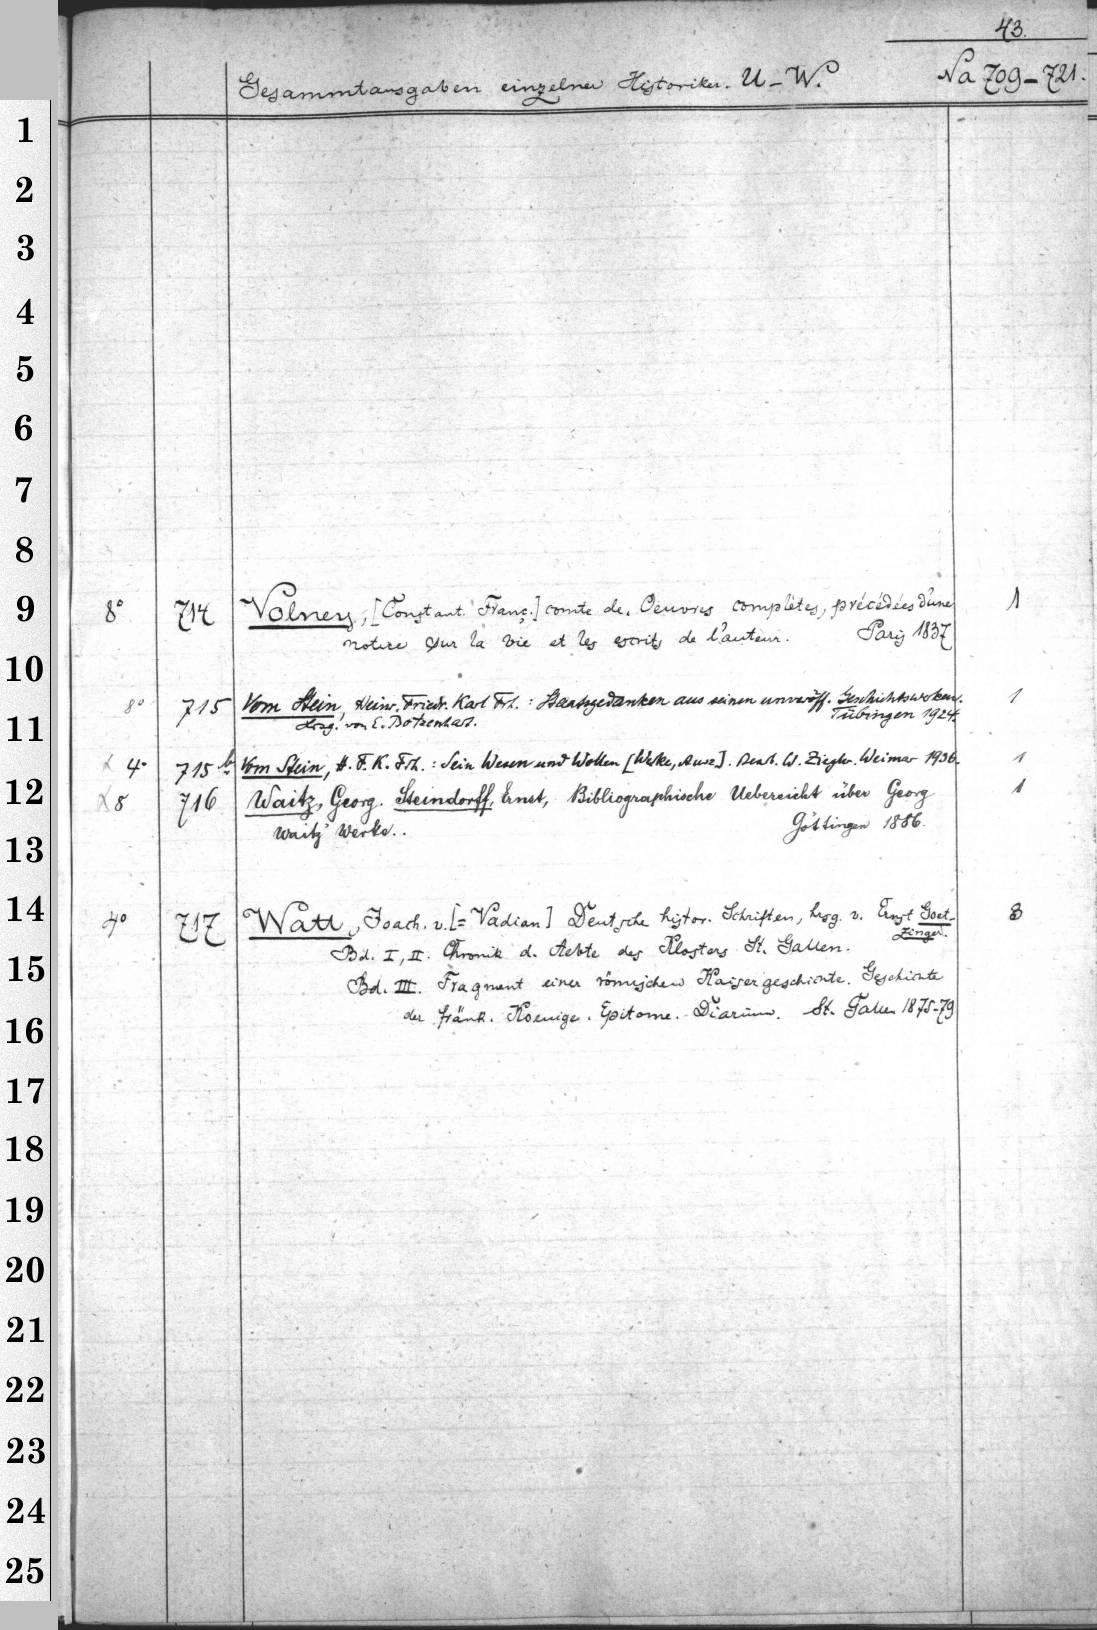 43.
Gesammtausgaben einzelner Historiker. U-W. Na 709-721.
1
2
3
4
5
6
7
8
9
10
11
12
13
14
15
16
17
18
19
20
21
22
23
24
25
8° 714 Volney, [Constant. Franç.] comte de. Oeuvres complètes, précédées d'une 1
notice sur la vie et les escrits de l'auteur. Paris 1837
8° 715 Vom Stein, Heinr. Friedr. Karl Frh.: Staatsgedanken aus seinen unveröff. Geschichtswerken. 1
Hrsg. von E. Botzenhart. Tübingen 1924.
4° 715b Vom Stein, H. F. K. Frh.: Sein Wesen und Wollen [Werke, Ausz]. Bearb. W. Ziegler. Weimar 1936. 1
8 716 Waitz, Georg. Steindorff, Ernst, Bibliographische Uebersicht über Georg 1
Waitz' Werke.. Göttingen 1886.
4° 717 Watt, Joach. v. [= Vadian] Deutsche histor. Schriften, hrsg. v. Ernst Goet- 3
zinger.
Bd. I, II. Chronik d. Aebte des Klosters St. Gallen.
Bd. III. Fragment einer römischen Kaisergeschichte. Geschichte
der fränk. Koenige. Epitome. Diarium. St. Gallen 1875-79